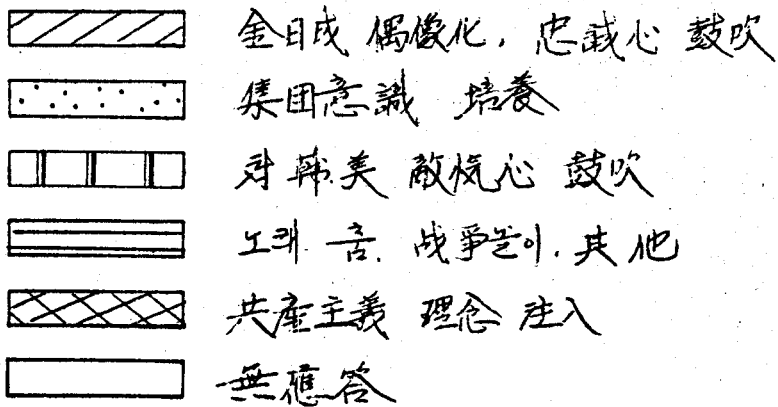 金日成 偶像化, 忠誠心 鼓吹
集団意識 培養
対 韓.美 敵愾心 鼓吹
노래. 춤. 战爭놀이. 其他
共産主義 理念 注入
無應答